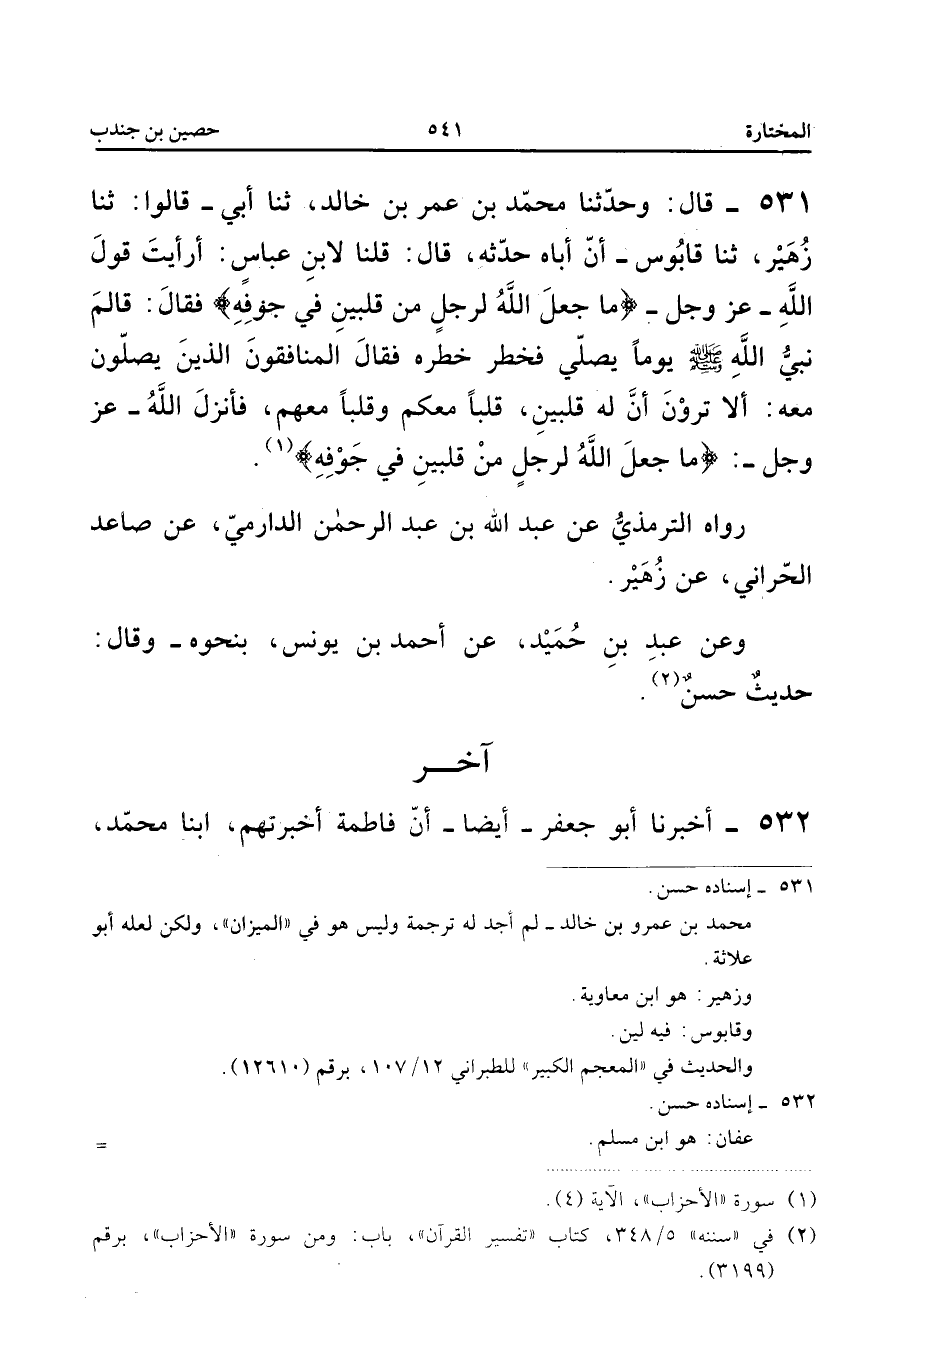 المختارة ٥٤١ حصين بن جندب
٥٣١ ـ قال: وحدّثنا محمّد بن عمر بن خالد، ثنا أبي ـ قالوا: ثنا
زُهَيْر، ثنا قابُوس ـ أنّ أباه حدّثه، قال: قلنا لابنِ عباسٍ: أرأيتَ قولَ
اللَّهِ ـ عز وجل ـ ﴿ما جعلَ اللَّهُ لرجلٍ من قلبينِ في جوفِهِ﴾ فقالَ: قالمَ
نبيُّ اللَّهِ ﷺ يوماً يصلّي فخطر خطره فقالَ المنافقونَ الذينَ يصلّون
معه: ألا تروْنَ أنَّ له قلبينِ، قلباً معكم وقلباً معهم، فأنزلَ اللَّهُ ـ عز
وجل ـ: ﴿ما جعلَ اللَّهُ لرجلٍ منْ قلبينِ في جَوْفِهِ﴾(١).
رواه الترمذيُّ عن عبد الله بن عبد الرحمٰن الدارميّ، عن صاعد
الحّراني، عن زُهَيْر.
وعن عبدِ بنِ حُمَيْدِ، عن أحمد بن يونس، بنحوه ـ وقال:
حديثٌ حسنٌ(٢).
آخــر
٥٣٢ ـ أخبرنا أبو جعفر ـ أيضا ـ أنّ فاطمة أخبرتهم، ابنا محمّد،
٥٣١ ـ إسناده حسن.
محمد بن عمرو بن خالد ـ لم أجد له ترجمة وليس هو في «الميزان»، ولكن لعله أبو
علاثة.
وزهير: هو ابن معاوية.
وقابوس: فيه لين.
والحديث في «المعجم الكبير» للطبراني ١٢/١٠٧، برقم (١٢٦١٠).
٥٣٢ ـ إسناده حسن.
عفان: هو ابن مسلم. =
(١) سورة «الأحزاب»، الآية (٤).
(٢) في «سننه» ٣٤٨/٥، كتاب «تفسير القرآن»، باب: ومن سورة «الأحزاب»، برقم
(٣١٩٩).